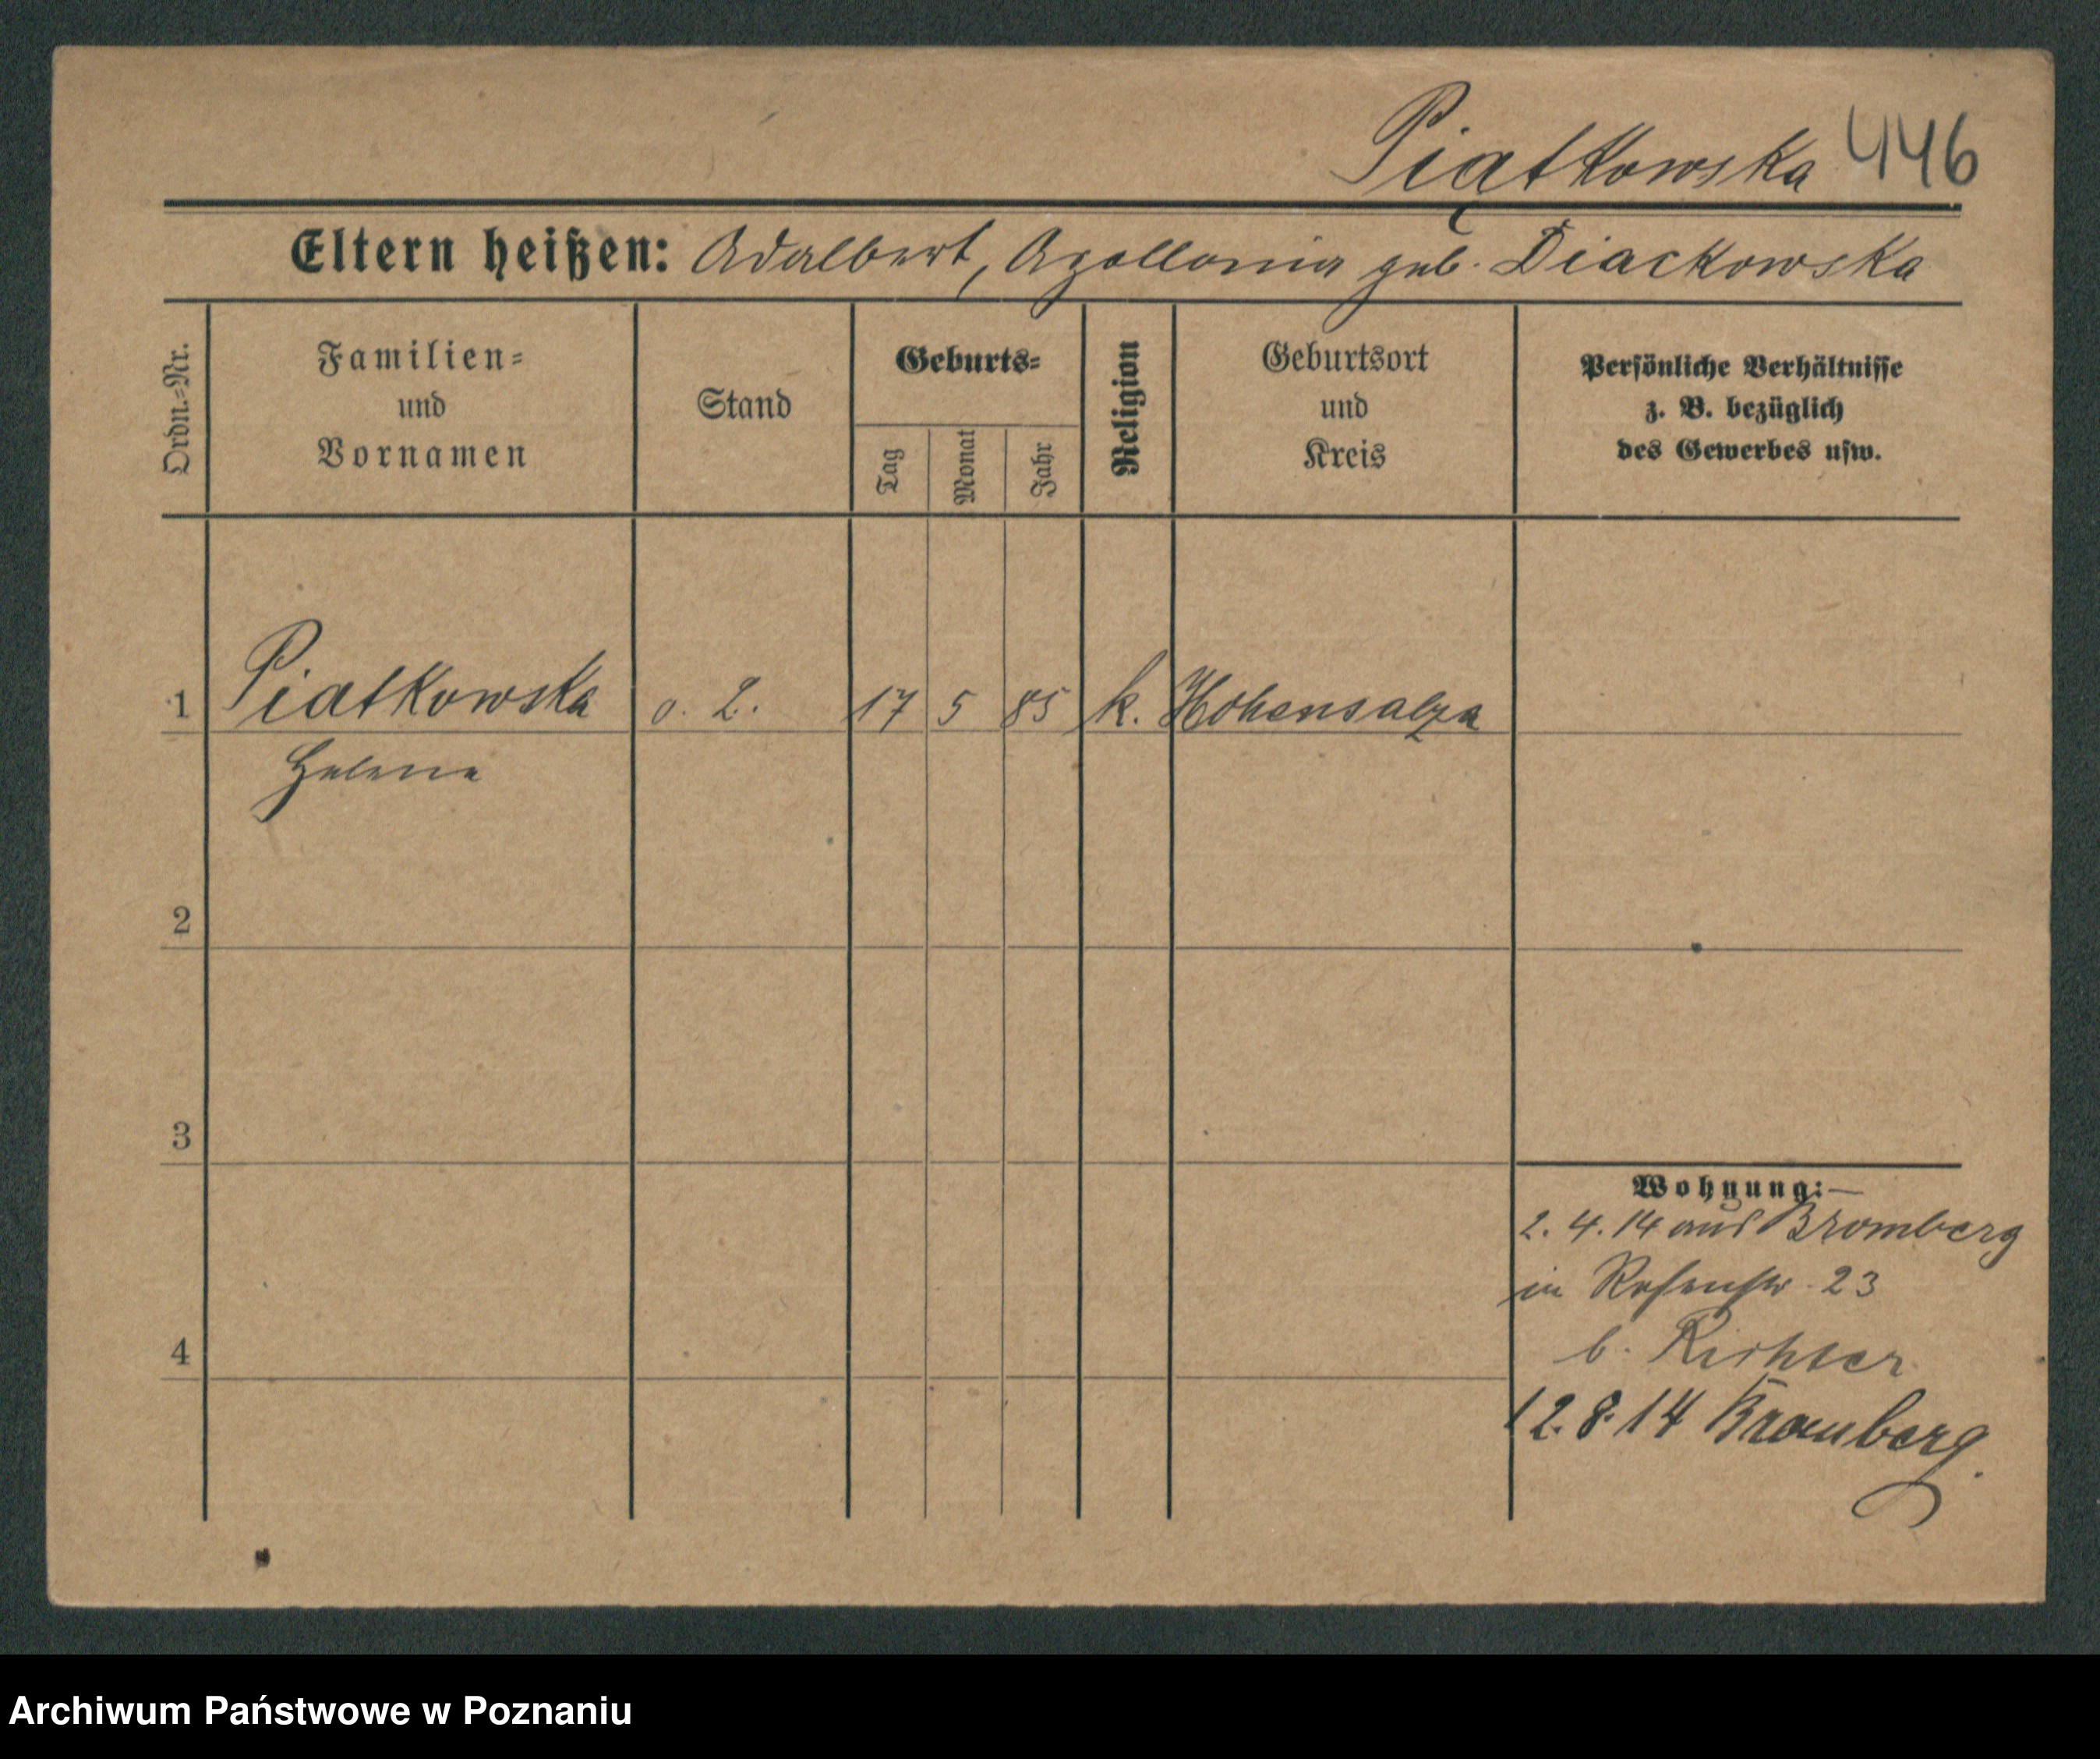 Piątkowska 446
Eltern heißen: Adalbert, Apollonia geb. Diackowska
Ordn.=Nr.
Familien=
und
Vornamen
Stand
Geburts=
Tag
Monat
Jahr
Religion
Geburtsort
und
Kreis
Persönliche Verhältnisse
z. B. bezüglich
des Gewerbes usw.
1 Piatkowska o. 2. 17 5 85 k. Hohensalza
Helene
2
3
4
Wohnung:
2. 4. 14 aus Bromberg
in Rosenstr. 23
b. Richter
12.8.14 Bromberg.
Archiwum Państwowe w Poznaniu